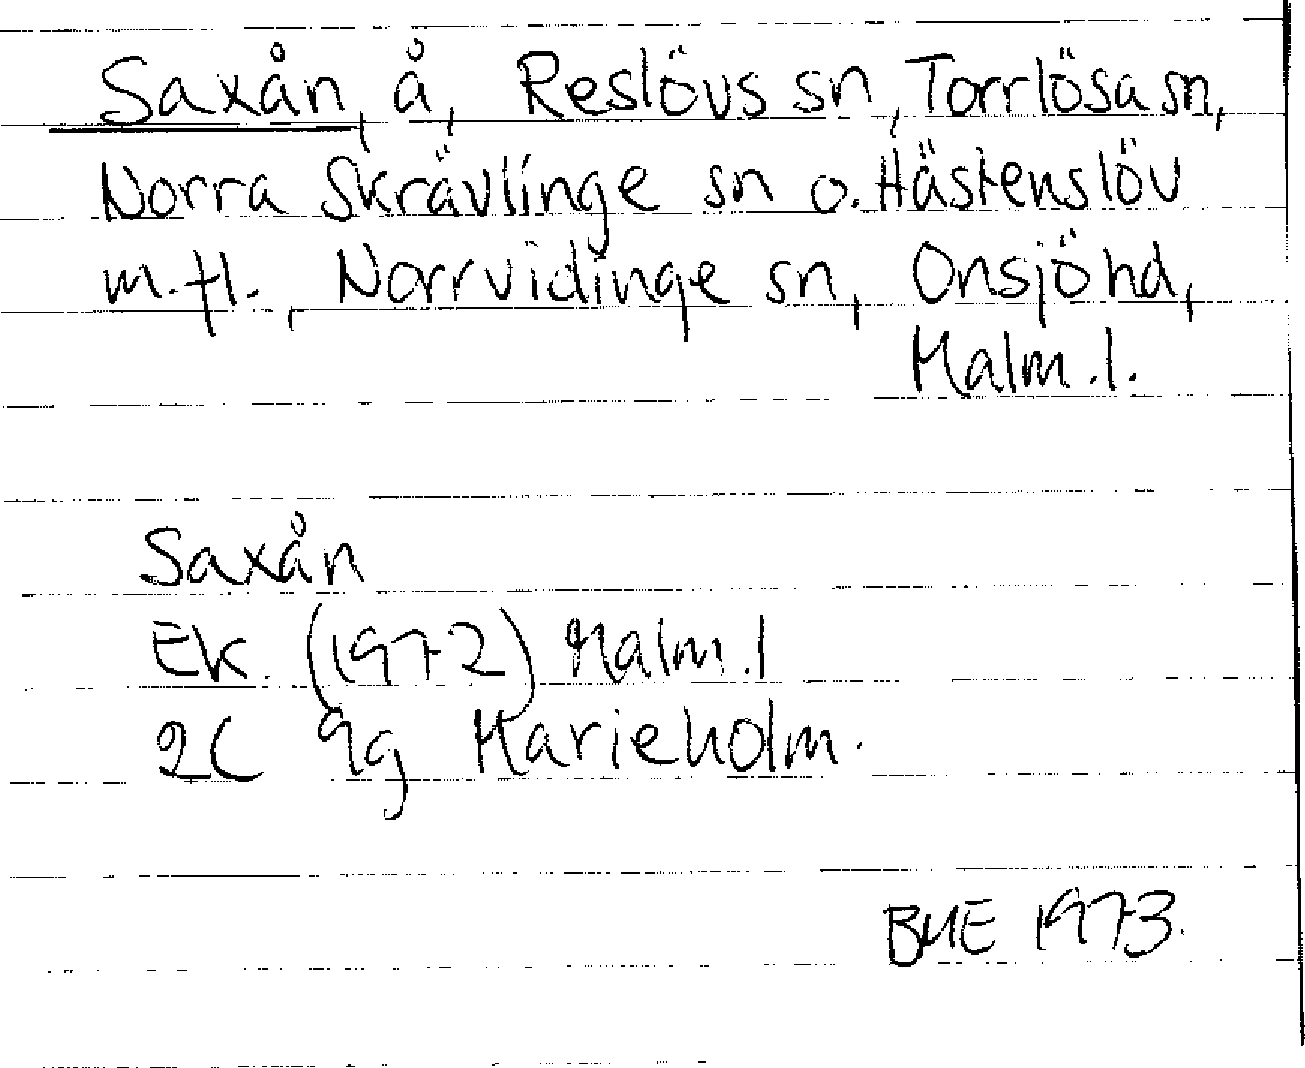 Saxån, å, Reslövs sn, Torrlösa sn,
Norra Skrävlinge sn o. Hästenslöv
m.fl., Norrvidinge sn, Onsjö hd,
Malm.l.
Saxån
EK. (1972) Malm.l
2C 9g Marieholm.
BME 1973.